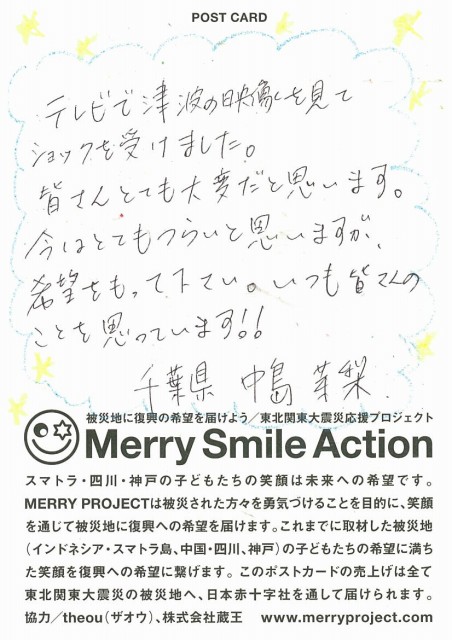 POST CARD
テレビで津波の映像を見て
ショックを受けました。
皆さんとても大変だと思います。
今はとてもつらいと思いますが、
希望をもって下さい。いつも皆さんの
ことを思っています!!
千葉県 中島 芽梨
被災地に復興の希望を届けよう/東北関東大震災応援プロジェクト
Merry Smile Action
スマトラ・四川・神戸の子どもたちの笑顔は未来への希望です。
MERRY PROJECTは被災された方々を勇気づけることを目的に、笑顔
を通じて被災地に復興への希望を届けます。これまでに取材した被災地
(インドネシア・スマトラ島、中国・四川、神戸)の子どもたちの希望に満ち
た笑顔を復興への希望に繋げます。このポストカードの売上げは全て
東北関東大震災の被災地へ、日本赤十字社を通して届けられます。
協力/theou(ザオウ)、株式会社蔵王 www.merryproject.com